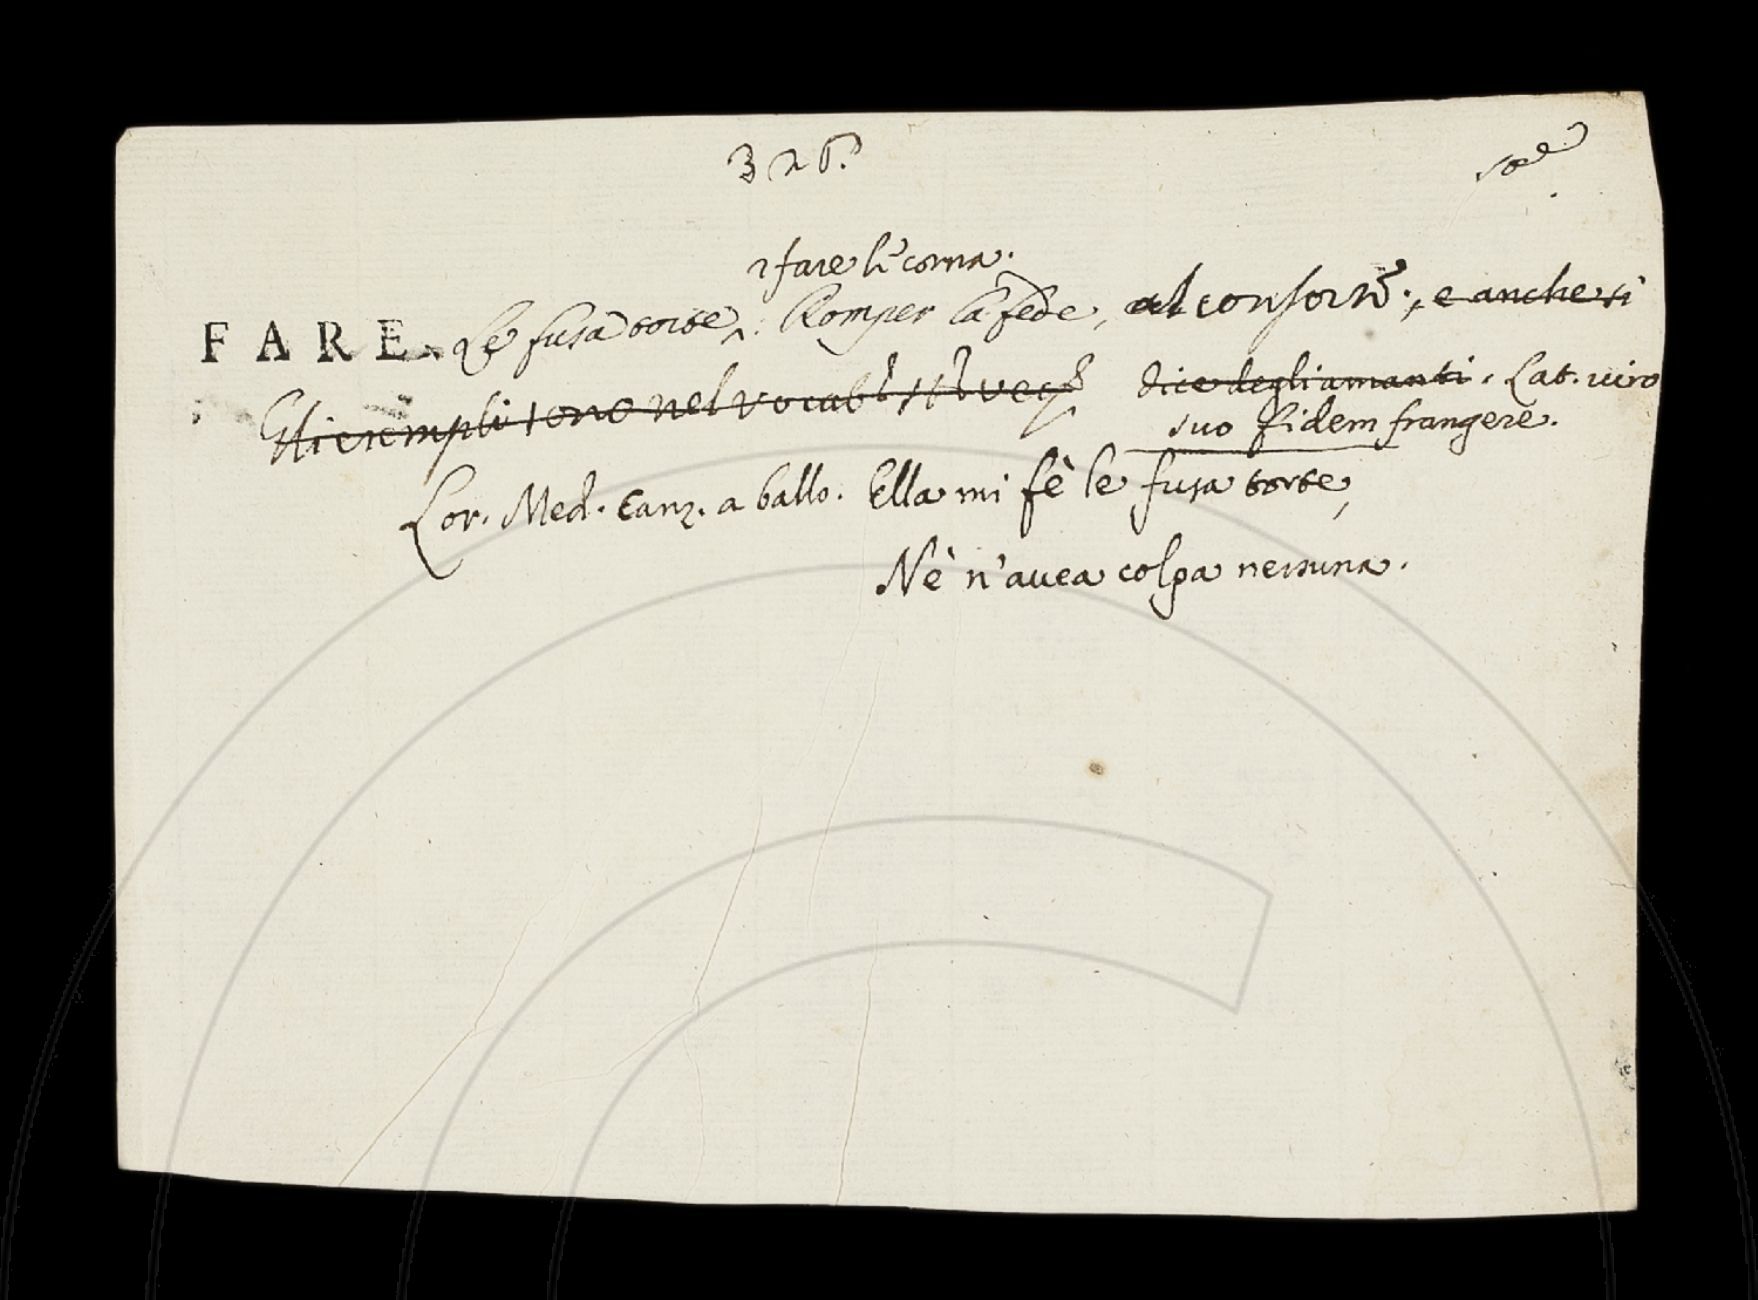 326.
fare le corna.
FARE. Le fusa torte. Romper la fede, al consorte., e anche si
Gli esempli sono nel vocab. dice degli amanti. Lat. viro
suo fidem frangere.
Lor. Med. Canz. a ballo. Ella mi fè le fusa torte,
Nè n'avea colpa nessuna.